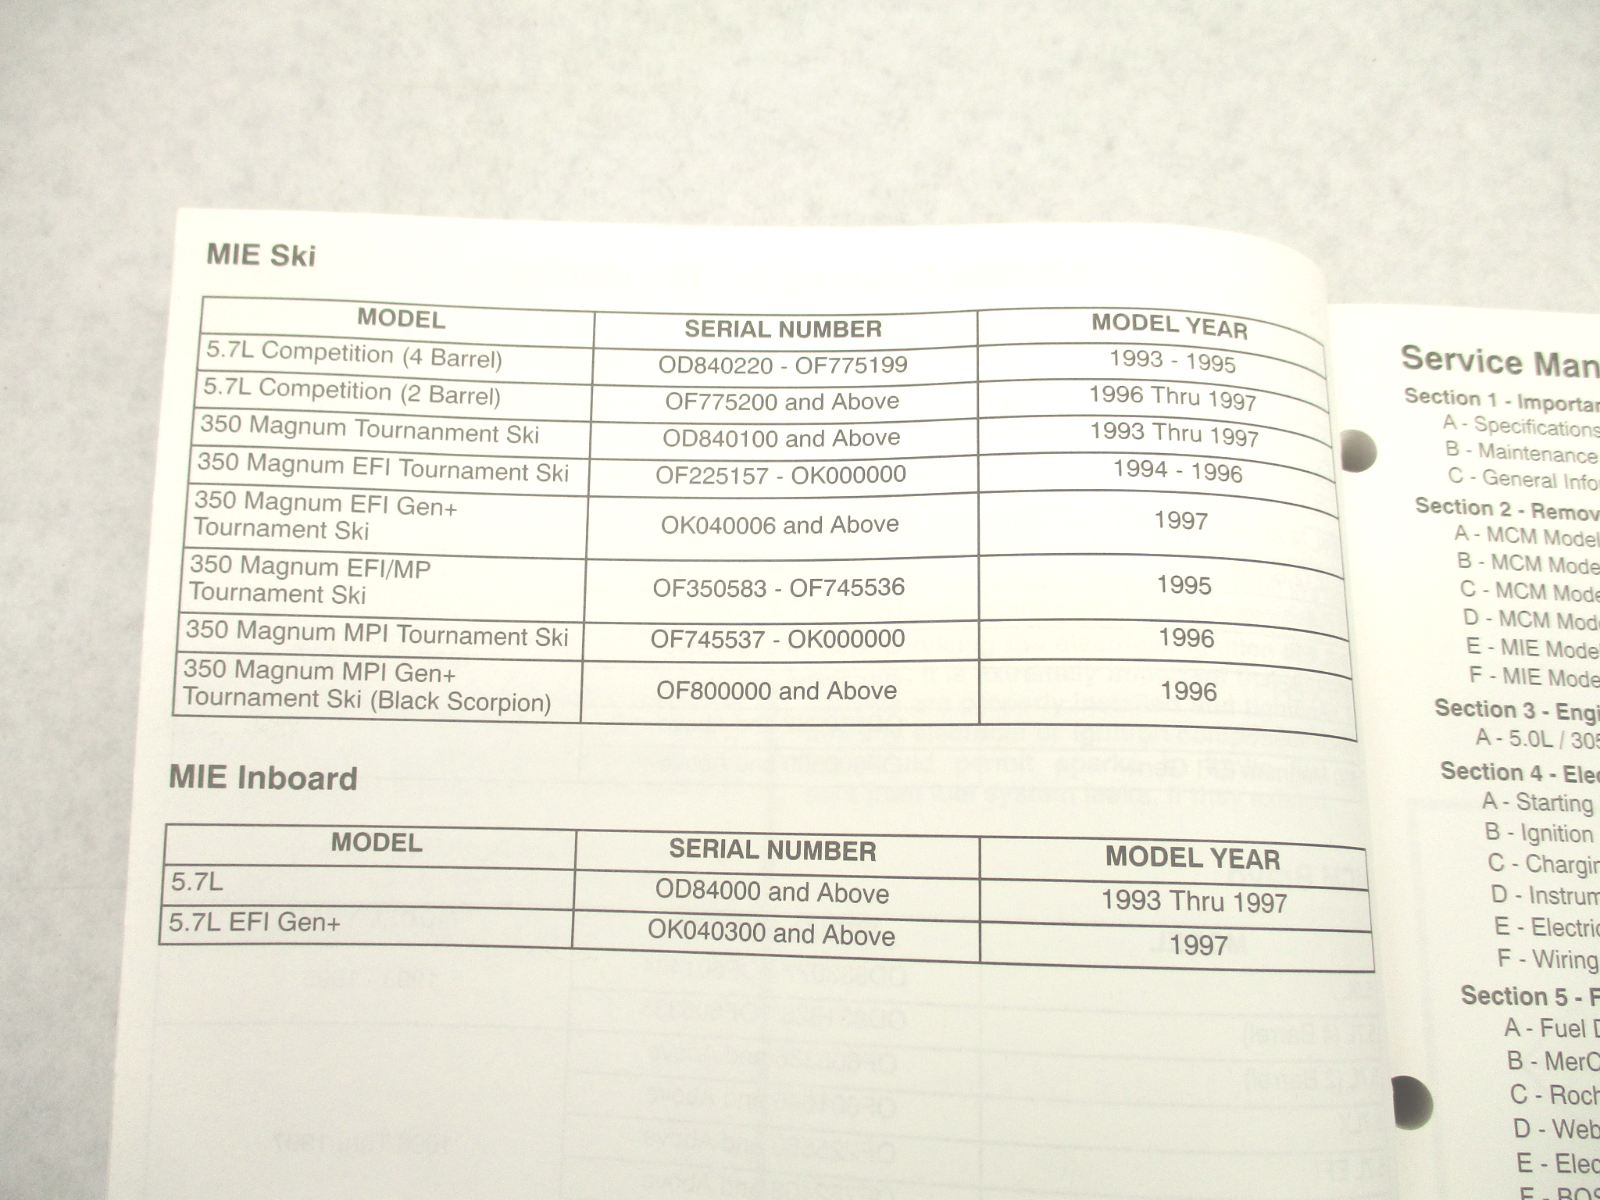 MIE Ski
MODEL SERIAL NUMBER MODEL YEAR
5.7L Competition (4 Barrel) OD840220 - OF775199 1993 - 1995
5.7L Competition (2 Barrel) OF775200 and Above 1996 Thru 1997
350 Magnum Tournanment Ski OD840100 and Above 1993 Thru 1997
350 Magnum EFI Tournament Ski OF225157 - OK000000 1994 - 1996
350 Magnum EFI Gen+
Tournament Ski OK040006 and Above 1997
350 Magnum EFI/MP
Tournament Ski OF350583 - OF745536 1995
350 Magnum MPI Tournament Ski OF745537 - OK000000 1996
350 Magnum MPI Gen+
Tournament Ski (Black Scorpion) OF800000 and Above 1996
MIE Inboard
MODEL SERIAL NUMBER MODEL YEAR
5.7L OD84000 and Above 1993 Thru 1997
5.7L EFI Gen+ OK040300 and Above 1997
Service Man
Section 1 - Importan
A - Specifications
B - Maintenance
C - General Info
Section 2 - Remov
A - MCM Model
B - MCM Mode
C - MCM Mode
D - MCM Mod
E - MIE Mode
F - MIE Mode
Section 3 - Engi
A - 5.0L / 305
Section 4 - Elec
A - Starting
B - Ignition
C - Chargin
D - Instrum
E - Electric
F - Wiring
Section 5 - F
A - Fuel D
B - MerC
C - Roch
D - Web
E - Elec
F - BOS